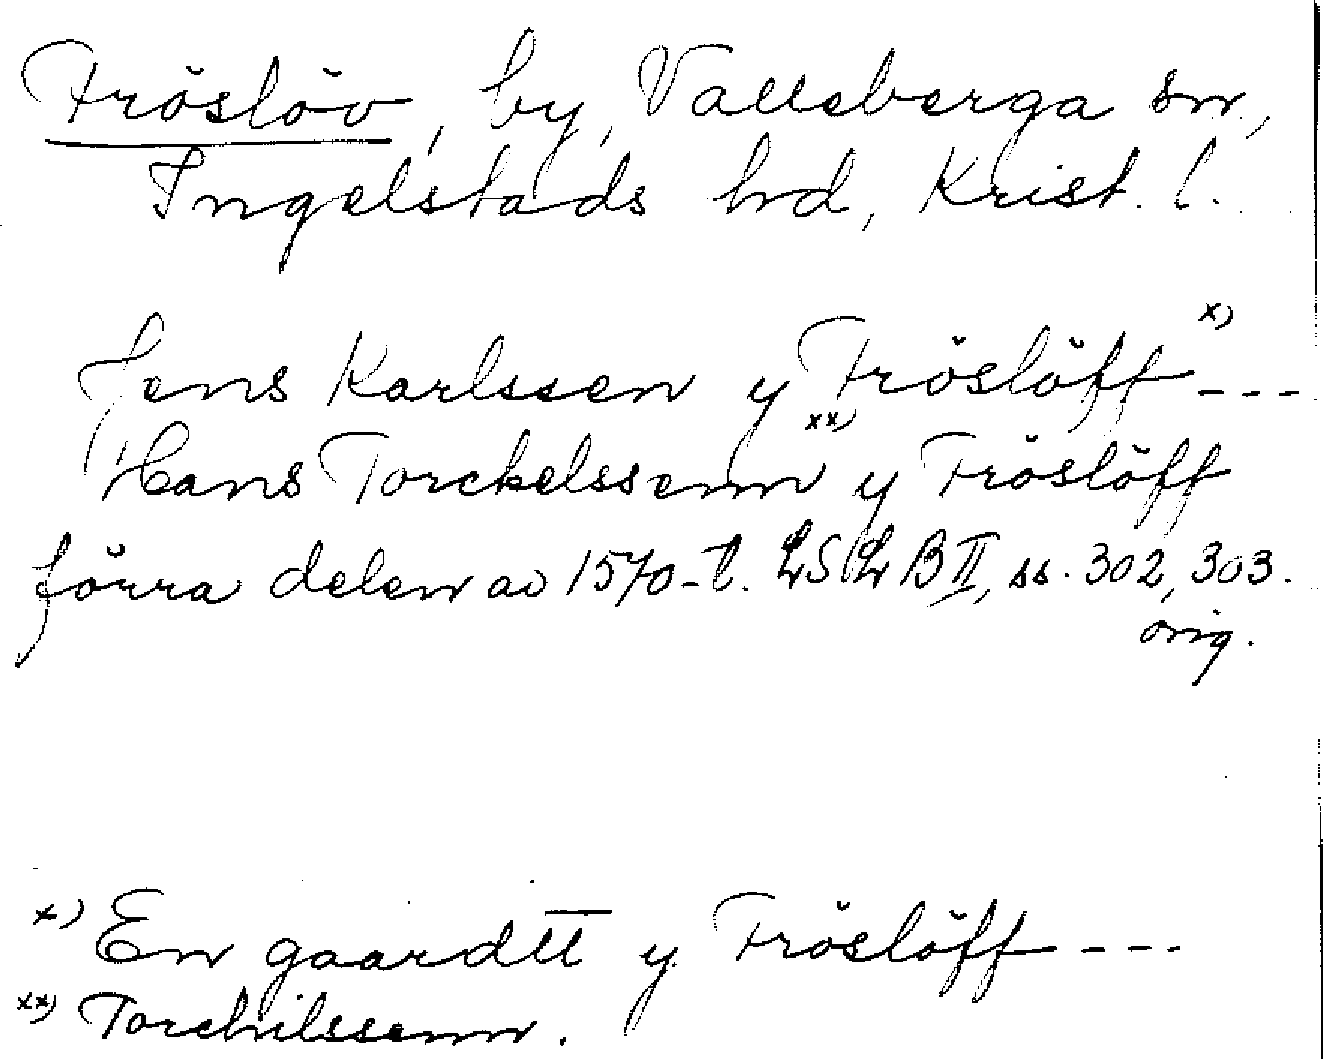 Fröslöv, by, Valleberga sn,
Ingelstads hd, Krist. l.
Jens Karlssen y Fröslöff x) ---
Hans Torckelssenn xx) y Fröslöff
förra delen av 1570-t. LSLB II, ss. 302, 303.
orig.
x) En gaardtt y Fröslöff ---
xx) Torchilssenn.